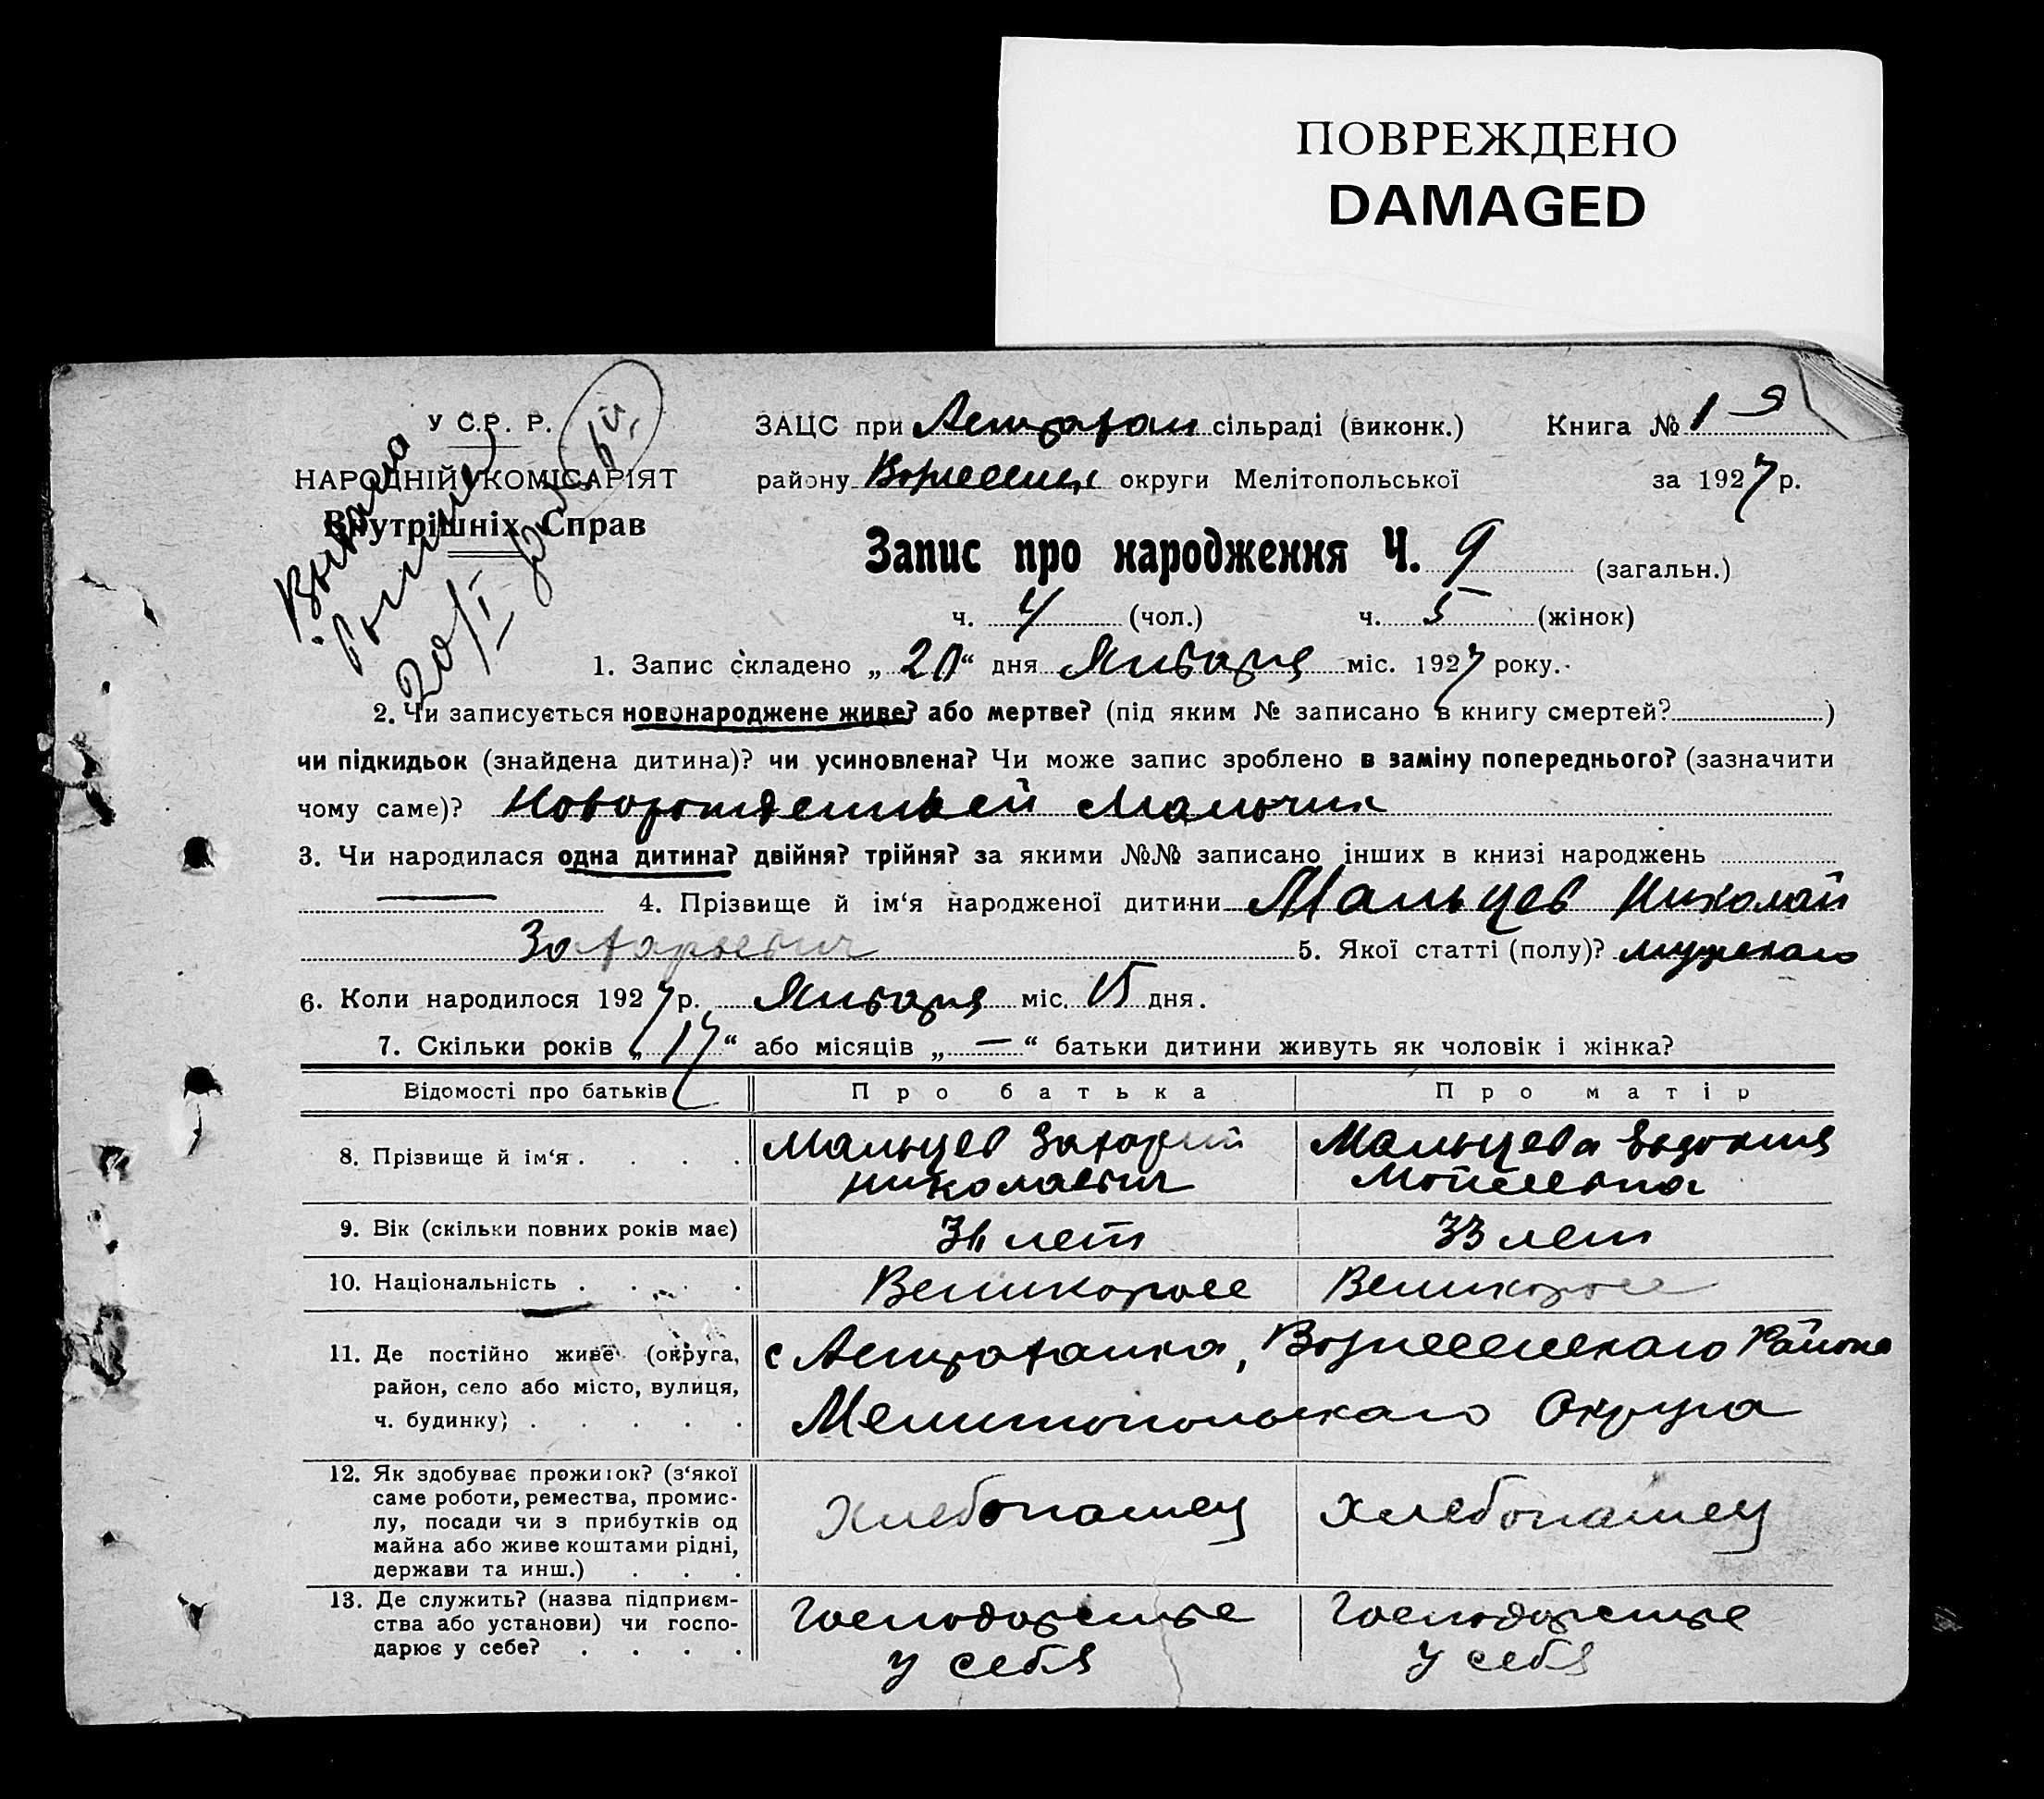 ПОВРЕЖДЕНО
DAMAGED
У С.Р. Р.
НАРОДНІЙ КОМІСАРІЯТ
Внутрішніх Справ
20/I
ЗАЦС при Астрахан сільраді (виконк.) Книга № 1
району Вознесенц округи Мелітопольської за 1927 р.
Запис про народження Ч. 9 (загальн.)
ч. 4 (чол.) ч. 5 (жінок)
1. Запис складено „ 20 “ дня Января міс. 1927 року.
2. Чи записується новонароджене живе? або мертве? (під яким № записано в книгу смертей? )
чи підкидьок (знайдена дитина)? чи усиновлена? Чи може запис зроблено в заміну попереднього? (зазначити
чому саме)? Новорожденный Мальчик
3. Чи народилася одна дитина? двійня? трійня? за якими №№ записано інших в книзі народжень
— 4. Прізвище й ім‘я народженої дитини Мальцев Николай
Захарьевич 5. Якої статті (полу)? мужскаго
6. Коли народилося 1927 р. Января міс. 15 дня.
7. Скільки років „ 17 “ або місяців „ — “ батьки дитини живуть як чоловік і жінка?
Відомості про батьків Про батька Про матір
8. Прізвище й ім‘я . . . . Мальцев Захарий Мальцева Евдокия
Николаевич Мойсеевна
9. Вік (скільки повних років має) лет 33 лет
10. Національність . . . . Великоросс Великоросс
11. Де постійно живе (округа, с Астраханка, Вознесенскаго Района
район, село або місто, вулиця,
ч. будинку) . . . . . Мелитопольскаго Округа
12. Як здобуває прожиток? (з‘якої
саме роботи, ремества, промис-
лу, посади чи з прибутків од Хлебопашец Хлебопашец
майна або живе коштами рідні,
держави та инш.) . . .
13. Де служить? (назва підприєм- Господарстве Господарстве
ства або установи) чи госпо-
дарює у себе? . . . . у себя у себя